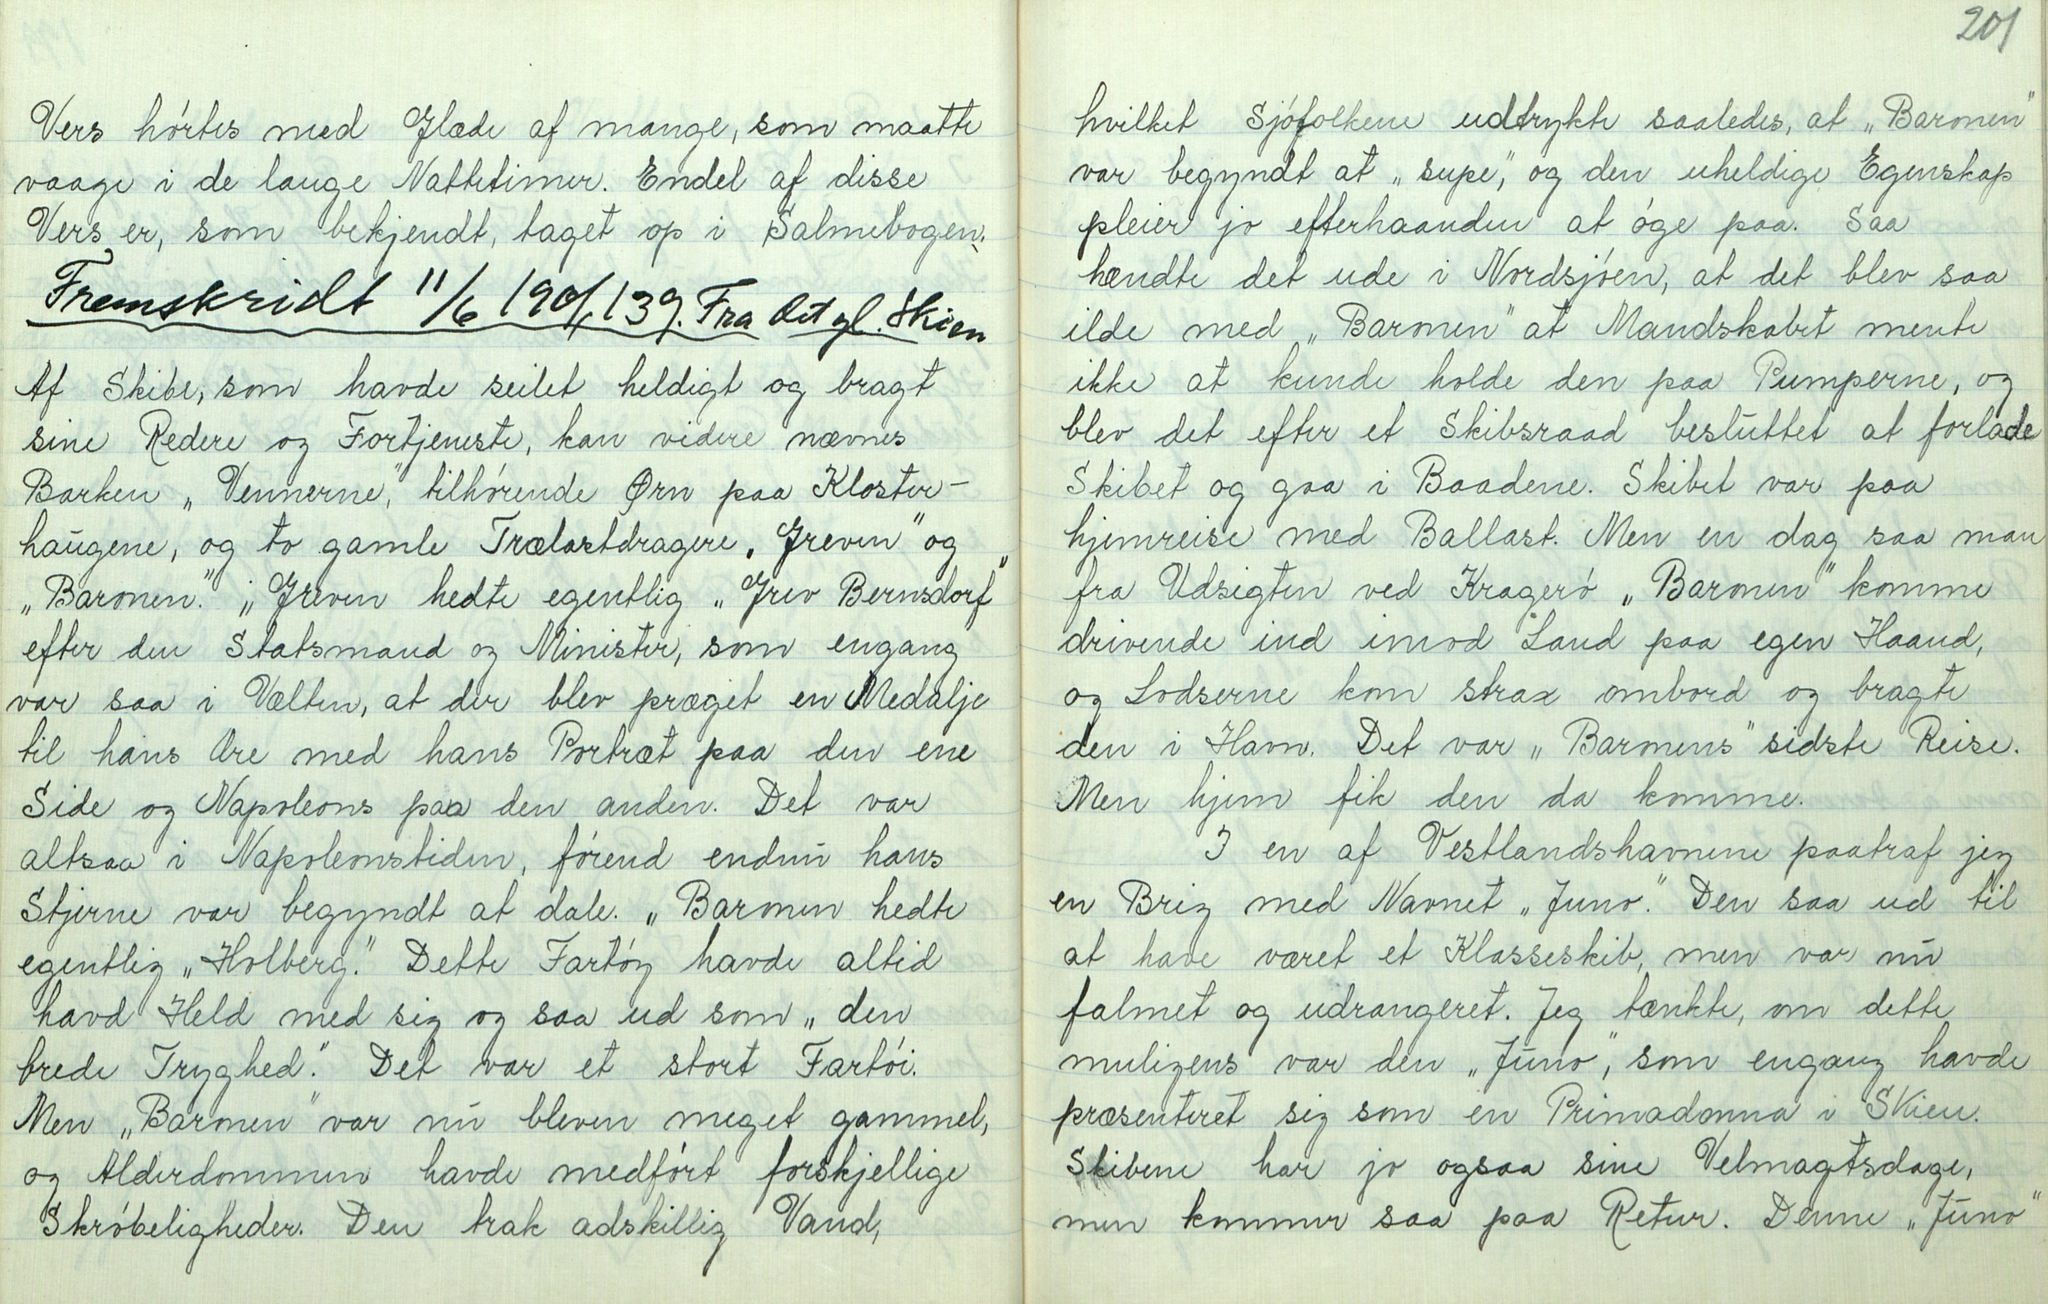 Vers hørtes med Glæde af mange, som maatte
vaage i de lange Nattetimer. Endel af disse
Vers er, som bekjendt, taget op i Salmebogen.
Fremskridt 11/6 1901, 139. Fra det gl. Skien
Af Skibe, som havde seilet heldigt og bragt
sine Redere og Fortjeneste, kan videre nævnes
Barken „Vennerne", tilhørende Ørn paa Kloster-
haugene, og to gamle Trælastdragere, „Greven" og
„Baronen." „Greven hedte egentlig „Grev Bernsdorf"
efter den Statsmand og Minister, som engang
var saa i Vælten, at der blev præget en Medalje
til hans Ære med hans Portræt paa den ene
Side og Napoleons paa den anden. Det var
altsaa i Napoleonstiden, førend endnu hans
Stjerne var begyndt at dale. „Baronen hedte
egentlig „Holberg." Dette Fartøy havde altid
havd Held med sig og saa ud som „den
brede Tryghed." Det var et stort Fartøi.
Men „Baronen" var nu bleven meget gammel,
og Alderdommen havde medført forskjellige
Skrøbeligheder. Den trak adskillig Vand,
201
hvilket Sjøfolkene udtrykte saaledes, at „Baronen"
var begyndt at „supe", og den uheldige Egenskap
pleier jo efterhaanden at øge paa. Saa
hændte det ude i Nordsjøen, at det blev saa
ilde med „Baronen" at Mandskabet mente
ikke at kunde holde den paa Pumperne, og
blev det efter et Skibsraad besluttet at forlade
Skibet og gaa i Baadene. Skibet var paa
hjemreise med Ballast. Men en dag saa man
fra Udsigten ved Kragerø „Baronen" komme
drivende ind imod Land paa egen Haand,
og Lodserne kom strax ombord og bragte
den i Havn. Det var „Baronens" sidste Reise.
Men hjem fik den da komme.
I en af Vestlandshavnene paatraf jeg
en Brig med Navnet „Juno." Den saa ud til
at have været et Klasseskib, men var nu
falmet og udrangeret. Jeg tænkte, om dette
muligens var den „Juno", som engang havde
præsenteret sig som en Primadonna i Skien.
Skibene har jo ogsaa sine Velmagtsdage,
men kommer saa paa Retur. Denne „Juno"